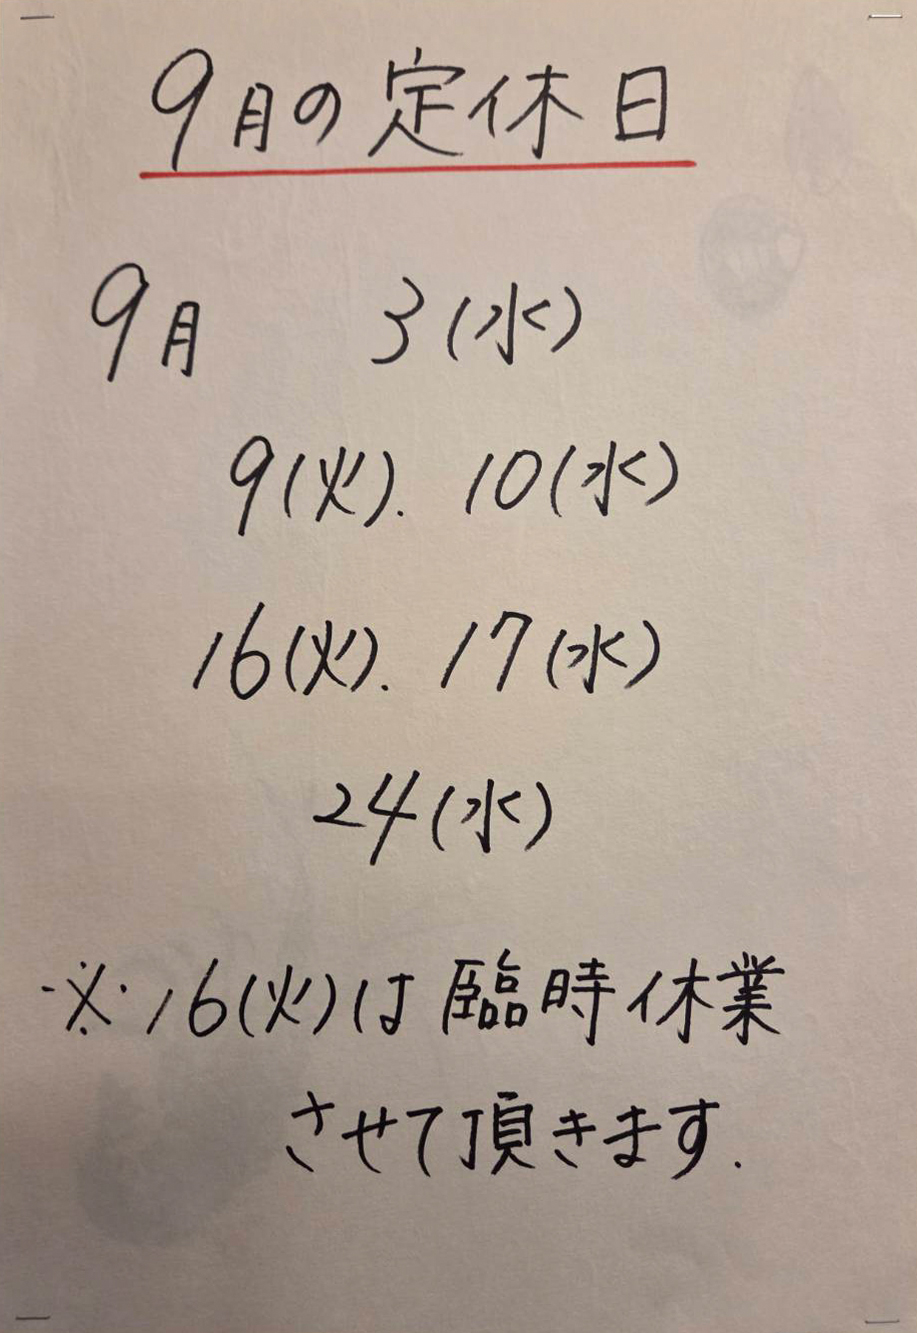 9月の定休日
9月 3(水)
9(火). 10(水)
16(火). 17(水)
24(水)
※16(火)は臨時休業
させて頂きます.